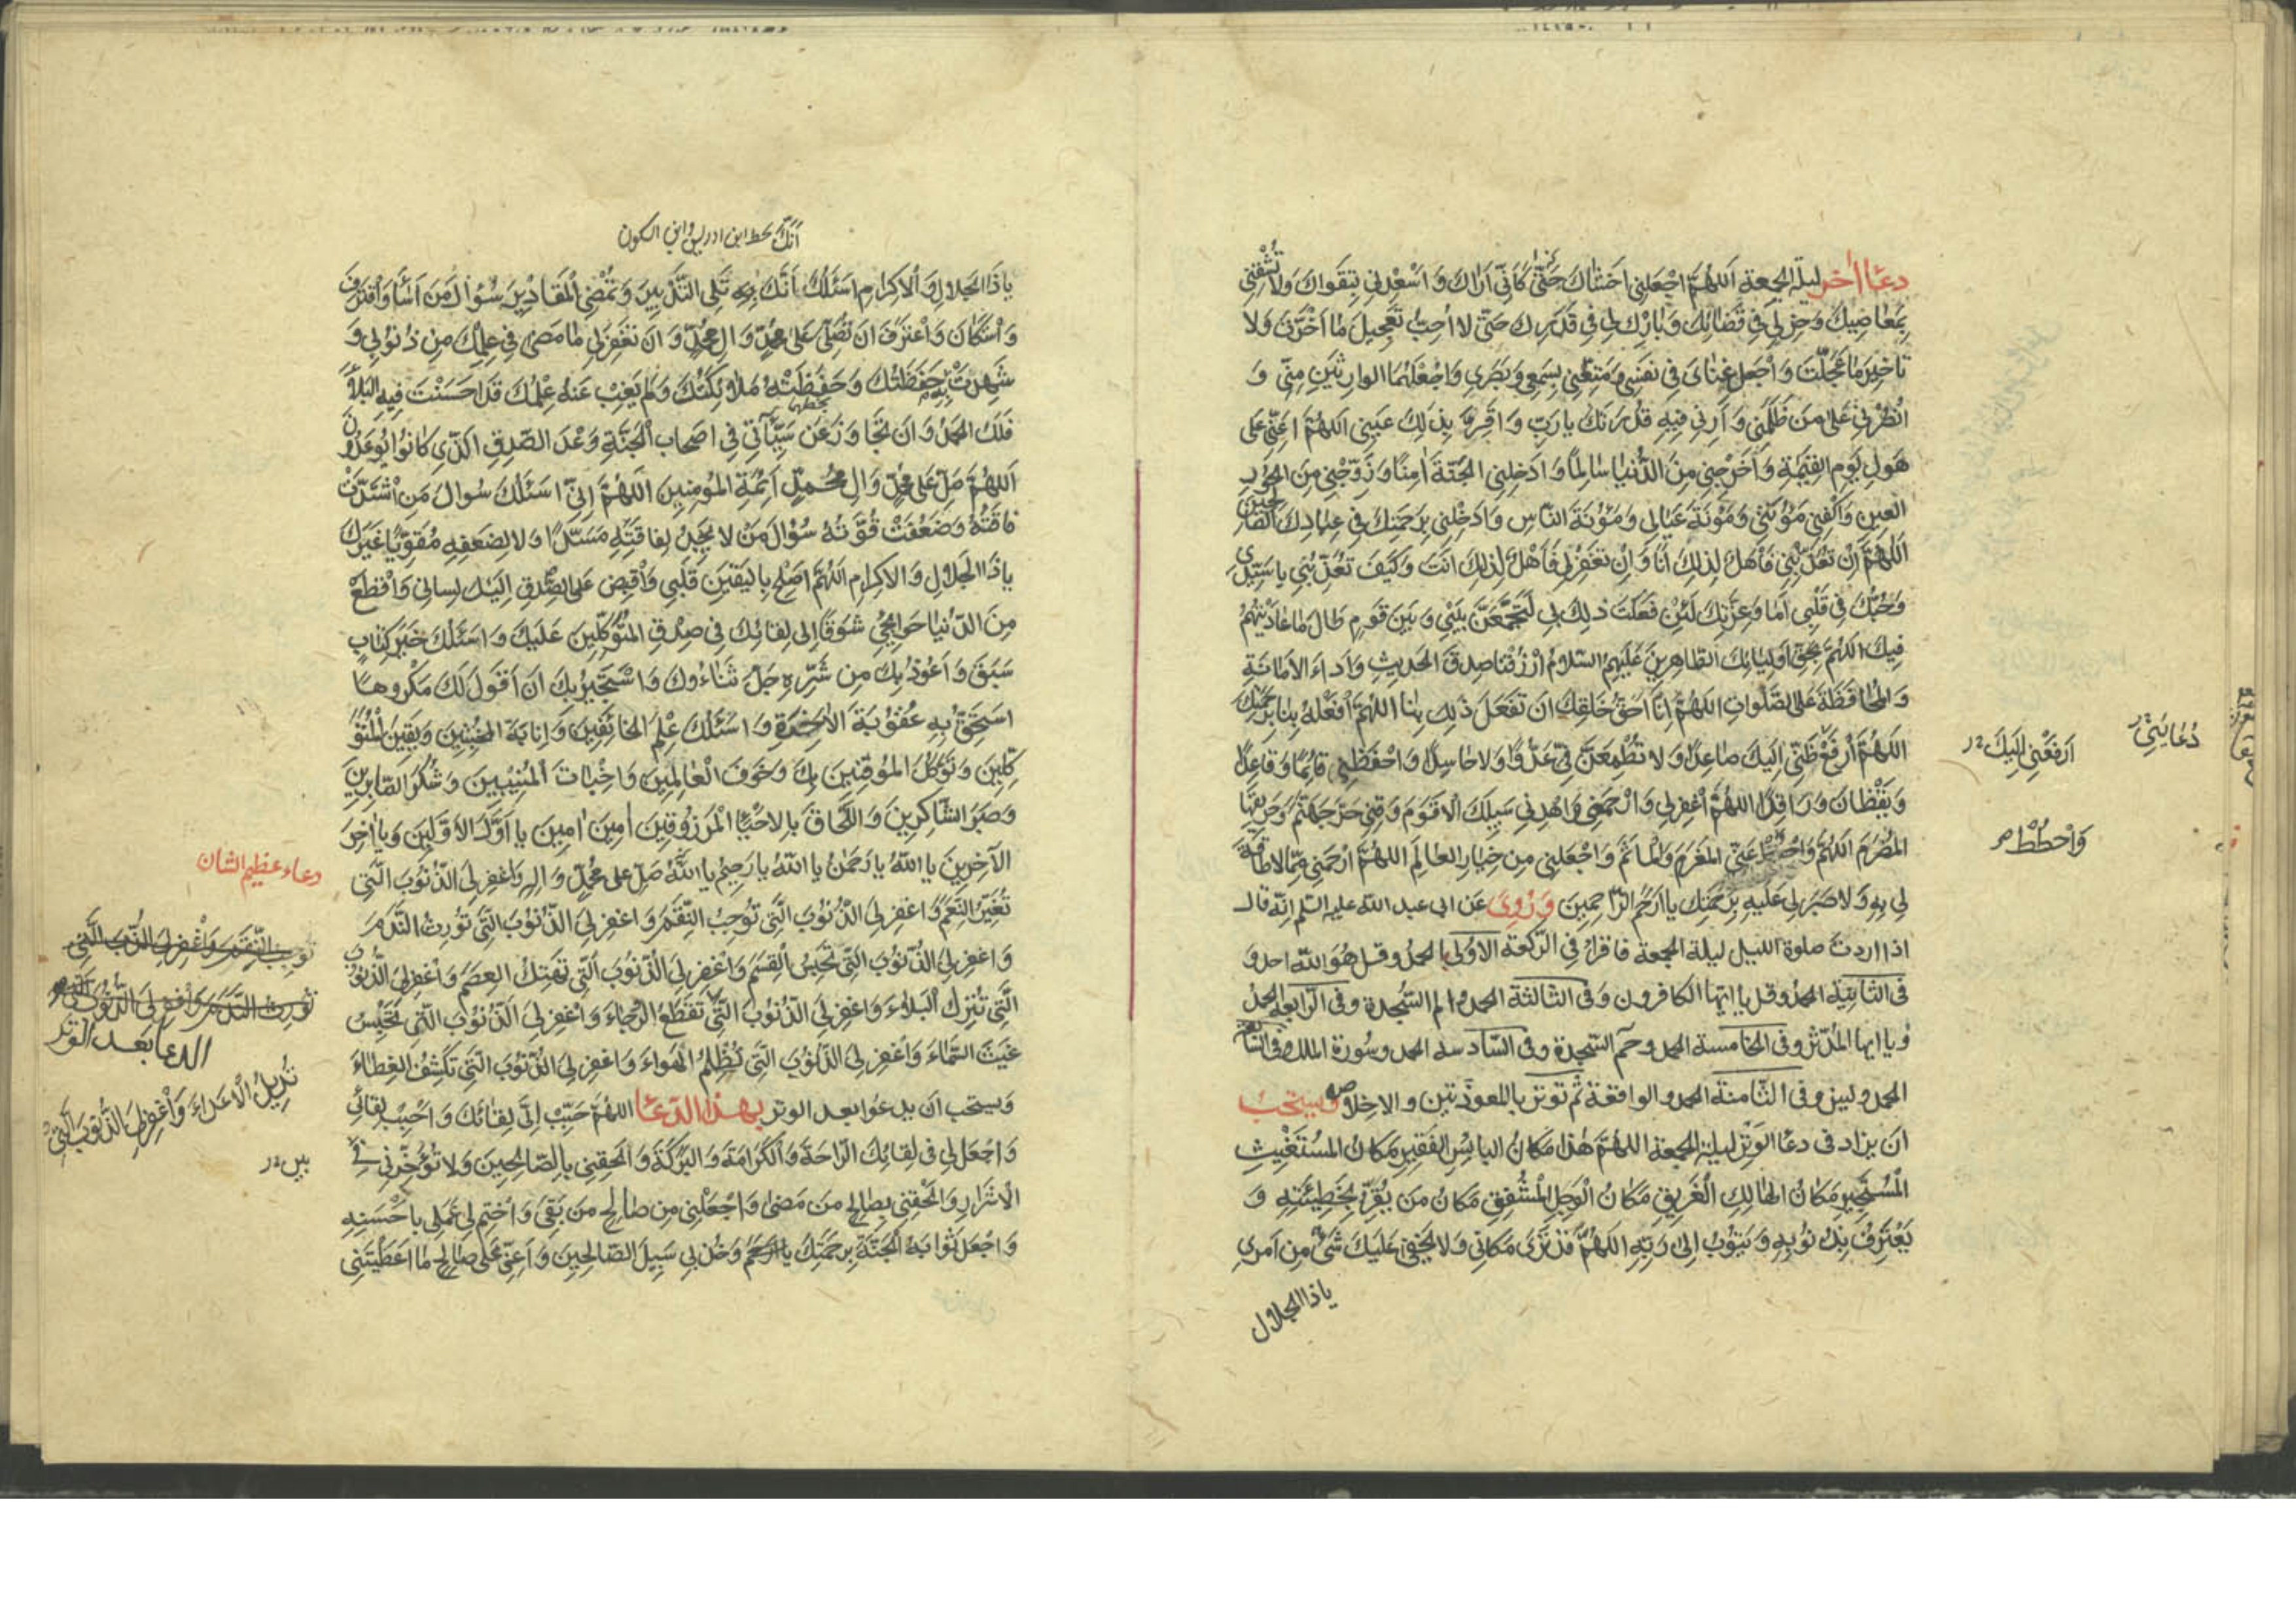 دعاء اخر ليلة الجمعة اَللّهُمَّ اجْعَلْنِي اَخْشَاكَ حَتّى كَاَنِّي اَرَاكَ وَ اَسْعِدْنِي بِتَقْوَاكَ وَلا تُشْقِنِي
بِمَعَاصِيكَ وَخِرْ لِي فِي قَضَائِكَ وَبَارِكْ لِي فِي قَدَرِكَ حَتّى لا اُحِبُّ تَعْجِيلَ مَا اَخَّرْتَ وَلا
تَاخِيرَ مَا عَجَّلْتَ وَاجْعَلْ غِنَايَ فِي نَفْسِي وَمَتِّعْنِي بِسَمْعِي وَبَصَرِي وَاجْعَلْهُمَا الوارِثَيْنِ مِنِّي وَ
انْصُرْنِي عَلى مَنْ ظَلَمَنِي وَ اَرِنِي فِيهِ قُدْرَتَكَ يا رَبِّ وَ اَقِرَّ بِذلِكَ عَيْنِي اَللّهُمَّ اَعِنِّي عَلى
هَوْلِ يَوْمِ القِيمَةِ وَاَخْرِجْنِي مِنَ الدُّنْيَا سَالِمًا وَ ادْخِلْنِي الجَنَّةَ اٰمِنًا وَزَوِّجْنِي مِنَ الحُورِ
العِينِ وَاكْفِنِي مَؤُنَتِي وَمَؤُنَةَ عَيَالِي وَمَؤُنَةَ النَّاسِ وَادْخِلْنِي بِرَحْمَتِكَ فِي عِبَادِكَ الصَّالِحِينَ
اَللّهُمَّ اِنْ تُعَذِّبْنِي فَاَهْلٌ لِذلِكَ اَنَا وَ اِنْ تَغْفِرْ لِي فَاَهْلٌ لِذلِكَ اَنْتَ وَكَيْفَ تُعَذِّبُنِي يا سَيِّدِي
وَحُبُّكَ فِي قَلْبِي اَمَا وَعِزَّتِكَ لَئِنْ فَعَلْتَ ذلِكَ بِي لَتَجْمَعَنَّ بَيْنِي وَ بَيْنَ قَوْمٍ طَالَ مَا عَادَيْتُهُمْ
فِيكَ اللّهُمَّ بِحَقِّ اَوْلِيَائِكَ الطَّاهِرِينَ عَلَيْهِمُ السَّلامُ ارْزُقْنَا صِدْقَ الحَدِيثِ وَ اَدَاءَ الاَمَانَةِ
وَ المُحَافَظَةَ عَلَى الصَّلَواتِ اللّهُمَّ اِنَّا اَحَقُّ خَلْقِكَ اَنْ تَفْعَلَ ذلِكَ بِنَا اللّهُمَّ افْعَلْهُ بِنَا بِرَحْمَتِكَ
اَللّهُمَّ ارْفَعْ ظَنِّي اِلَيْكَ صَاعِدًا وَ لا تُطْمِعَنَّ فِيَّ عَدُوًّا وَلا حَاسِدًا وَاحْفَظْنِي قَائِمًا وَقَاعِدًا
وَ يَقْظَانَ وَرَاقِدًا اللّهُمَّ اغْفِرْ لِي وَارْحَمْنِي وَاهْدِنِي سَبِيلَكَ الاَقْوَمَ وَقِنِي حَرَّ جَهَنَّمَ وَحَرِيقَهَا
المُضْرَمَ اَللّهُمَّ عَنِّي المَغْرَمَ وَالمَاْثَمَ وَ اجْعَلْنِي مِنْ خِيَارِ العَالَمِ اللّهُمَّ ارْحَمْنِي مِمَّا لا طَاقَةَ
لِي بِهِ وَلا صَبْرَ لِي عَلَيْهِ بِرَحْمَتِكَ يا اَرْحَمَ الرَّاحِمِينَ وَ رُوِىَ عَن ابى عبد الله عليه السّلم انّه قال
اذا اردت صلوة الليل ليلة الجمعة فاقرأ فى الرّكعة الاولى بالحمد وقل هو الله احد و
فى الثانية الحمد وقل يا ايّها الكافرون وفى الثالثة الحمد و الم السّجدة وفى الرّابعة الحمد
و يا ايها المدّثّر وفى الخامسة الحمد وحم السّجدة وفى السّادسة الحمد وسورة الملك
الحمد وليس وفى الثّامنة الحمد والواقعة ثم توتر بالمعوّذتين والاخلاص ويستحبّ
ان يزاد فى دعاء الوتر ليلة الجمعة اللّهُمَّ هٰذا مَكَانُ البائِسِ الفَقِيرِ مَكَانُ المُسْتَغِيثِ
المُسْتَجِيرِ مَكَانُ الهَالِكِ الْغَرِيقِ مَكَانُ الْوَجِلِ الْمُشْفِقِ مَكَانُ مَنْ يُقِرُّ بِخَطِيئَتِهِ وَ
يَعْتَرِفُ بِذُنُوبِهِ وَ يَتُوبُ اِلى رَبِّهِ اَللّهُمَّ قَدْ تَرَى مَكَانِي وَلا يَخْفى عَلَيْكَ شَيْءٌ مِنْ اَمْرِي
يا ذا الجلال
دُعَائِي
اَرْفَعْنِي اِلَيْكَ
وَاحْطُطْ
اَنَّكَ بخط ابن ادريس وابن السكون
يا ذَا الجَلالِ وَالاِكْرَامِ اَسْئَلُكَ بِاَنَّكَ تَلِي التَّدْبِيرَ وَ تُمْضِي الْمَقَادِيرَ سُؤَالَ مَنْ اَسَاءَ وَاقْتَرَفَ
وَاسْتَكَانَ وَاعْتَرَفَ اَنْ تُصَلِّيَ عَلى مُحَمَّدٍ وَ الِ مُحَمَّدٍ وَ اَنْ تَغْفِرَ لِي مَا مَضى فِي عِلْمِكَ مِنْ ذُنُوبِي وَ
شَهِدَتْ بِهِ حَفَظَتُكَ وَ حَفِظَتْهُ مَلائِكَتُكَ وَ لَمْ يَغِبْ عَنْهُ عِلْمُكَ قَدْ اَحْسَنْتَ فِيهِ البَلاءَ
فَلَكَ الحَمْدُ وَ اَنْ تَجَاوَزَ عَنْ سَيِّآتِي فِي اَصْحَابِ الْجَنَّةِ وَعْدَ الصِّدْقِ الَّذِي كَانُوا يُوعَدُونَ
اَللّهُمَّ صَلِّ عَلى مُحَمَّدٍ وَ الِ مُحَمَّدٍ اَئِمَّةِ المُؤْمِنِينَ اللّهُمَّ اِنِّي اَسْئَلُكَ سُؤالَ مَنِ اشْتَدَّتْ
فَاقَتُهُ وَضَعُفَتْ قُوَّتُهُ سُؤَالَ مَنْ لا يَجِدُ لِفَاقَتِهِ مَسَدًّا وَلا لِضَعْفِهِ مُقَوِّيًا غَيْرَكَ
يا ذَا الجَلالِ وَ الاِكْرَامِ اَللّهُمَّ اَصْلِحْ بِاليَقِينِ قَلْبِي وَ اقْبِضْ عَلَى الصِّدْقِ اِلَيْكَ لِسَانِي وَ اقْطَعْ
مِنَ الدُّنْيَا حَوائِجِي شَوْقًا اِلى لِقَائِكَ فِي صِدْقِ المُتَوَكِّلِينَ عَلَيْكَ وَ اَسْئَلُكَ خَيْرَ كِتَابٍ
سَبَقَ وَ اَعُوذُ بِكَ مِنْ شَرِّهِ جَلَّ ثَنَاءُوكَ وَ اَسْتَجِيرُ بِكَ اَنْ اَقُولَ لَكَ مَكْرُوهًا
اَسْتَحِقُّ بِهِ عُقُوبَةَ الاٰخِرَةِ وَ اَسْئَلُكَ عِلْمَ الخَائِفِينَ وَ اِنَابَةَ المُخْبِتِينَ وَ يَقِينَ الْمُتَوَ
كِّلِينَ وَ تَوَكُّلَ المُوقِنِينَ بِكَ وَ خَوْفَ الْعَالِمِينَ وَ اِخْبَاتَ المُنِيبِينَ وَ شُكْرَ الصَّابِرِينَ
وَ صَبْرَ الشَّاكِرِينَ وَ اللَّحَاقَ بِالاَحْيَاءِ المَرْزُوقِينَ اٰمِينَ اٰمِينَ يا اَوَّلَ الاَوَّلِينَ وَ يا اٰخِرَ
الآخِرِينَ يا اَللهُ يا رَحْمٰنُ يا اَللهُ يا رَحِيمُ يا اَللهُ صَلِّ عَلى مُحَمَّدٍ وَ الِهِ وَاغْفِرْ لِيَ الذُّنُوبَ الَّتِي
تُغَيِّرُ النِّعَمَ وَ اغْفِرْ لِيَ الذُّنُوبَ الَّتِي تُوجِبُ النِّقَمَ وَ اغْفِرْ لِيَ الذُّنُوبَ الَّتِي تُورِثُ النَّدَمَ
وَ اغْفِرْ لِيَ الذُّنُوبَ الَّتِي تَحْبِسُ القِسَمَ وَ اغْفِرْ لِيَ الذُّنُوبَ الَّتِي تَهْتِكُ العِصَمَ وَ اغْفِرْ لِيَ الذُّنُوبَ
الَّتِي تُنْزِلُ الْبَلاءَ وَ اغْفِرْ لِيَ الذُّنُوبَ الَّتِي تَقْطَعُ الرَّجَاءَ وَ اغْفِرْ لِيَ الذُّنُوبَ الَّتِي تَحْبِسُ
غَيْثَ السَّمَاءِ وَ اغْفِرْ لِيَ الذُّنُوبَ الَّتِي تُظْلِمُ الْهَواءَ وَ اغْفِرْ لِيَ الذُّنُوبَ الَّتِي تَكْشِفُ الغِطَاءَ
و يستحب ان يدعوا بعد الوتر بهذا الدّعاء اللّهُمَّ حَبِّبْ اِلَيَّ لِقَائَكَ وَ اَحْبِبْ لِقَائِي
وَ اجْعَلْ لِي فِي لِقَائِكَ الرَّاحَةَ وَ الْكَرَامَةَ وَ البَرَكَةَ وَ اَلْحِقْنِي بِالصَّالِحِينَ وَ لا تُؤَخِّرْنِي فِي
الاَشْرَارِ وَ اَلْحِقْنِي بِصَالِحِ مَنْ مَضى وَ اجْعَلْنِي مِنْ صَالِحِ مَنْ بَقِيَ وَ اخْتِمْ لِي عَمَلِي بِاَحْسَنِهِ
وَ اجْعَلْ ثَوَابَهُ الجَنَّةَ بِرَحْمَتِكَ وَ خُذْ بِي سَبِيلَ الصَّالِحِينَ وَ اَعِنِّي عَلى صَالِحِ مَا اَعْطَيْتَنِي
دعاء عظيم الشان
تُوجِبُ النِّقَمَ وَ اغْفِرْ لِيَ الذُّنُوبَ الَّتِي
تُورِثُ النَّدَمَ وَ اغْفِرْ لِيَ الذُّنُوبَ الَّتِي
الدعا بعد الوتر
تُدِيلُ الْاَعْدَاءَ وَ اغْفِرْ لِيَ الذُّنُوبَ الَّتِي